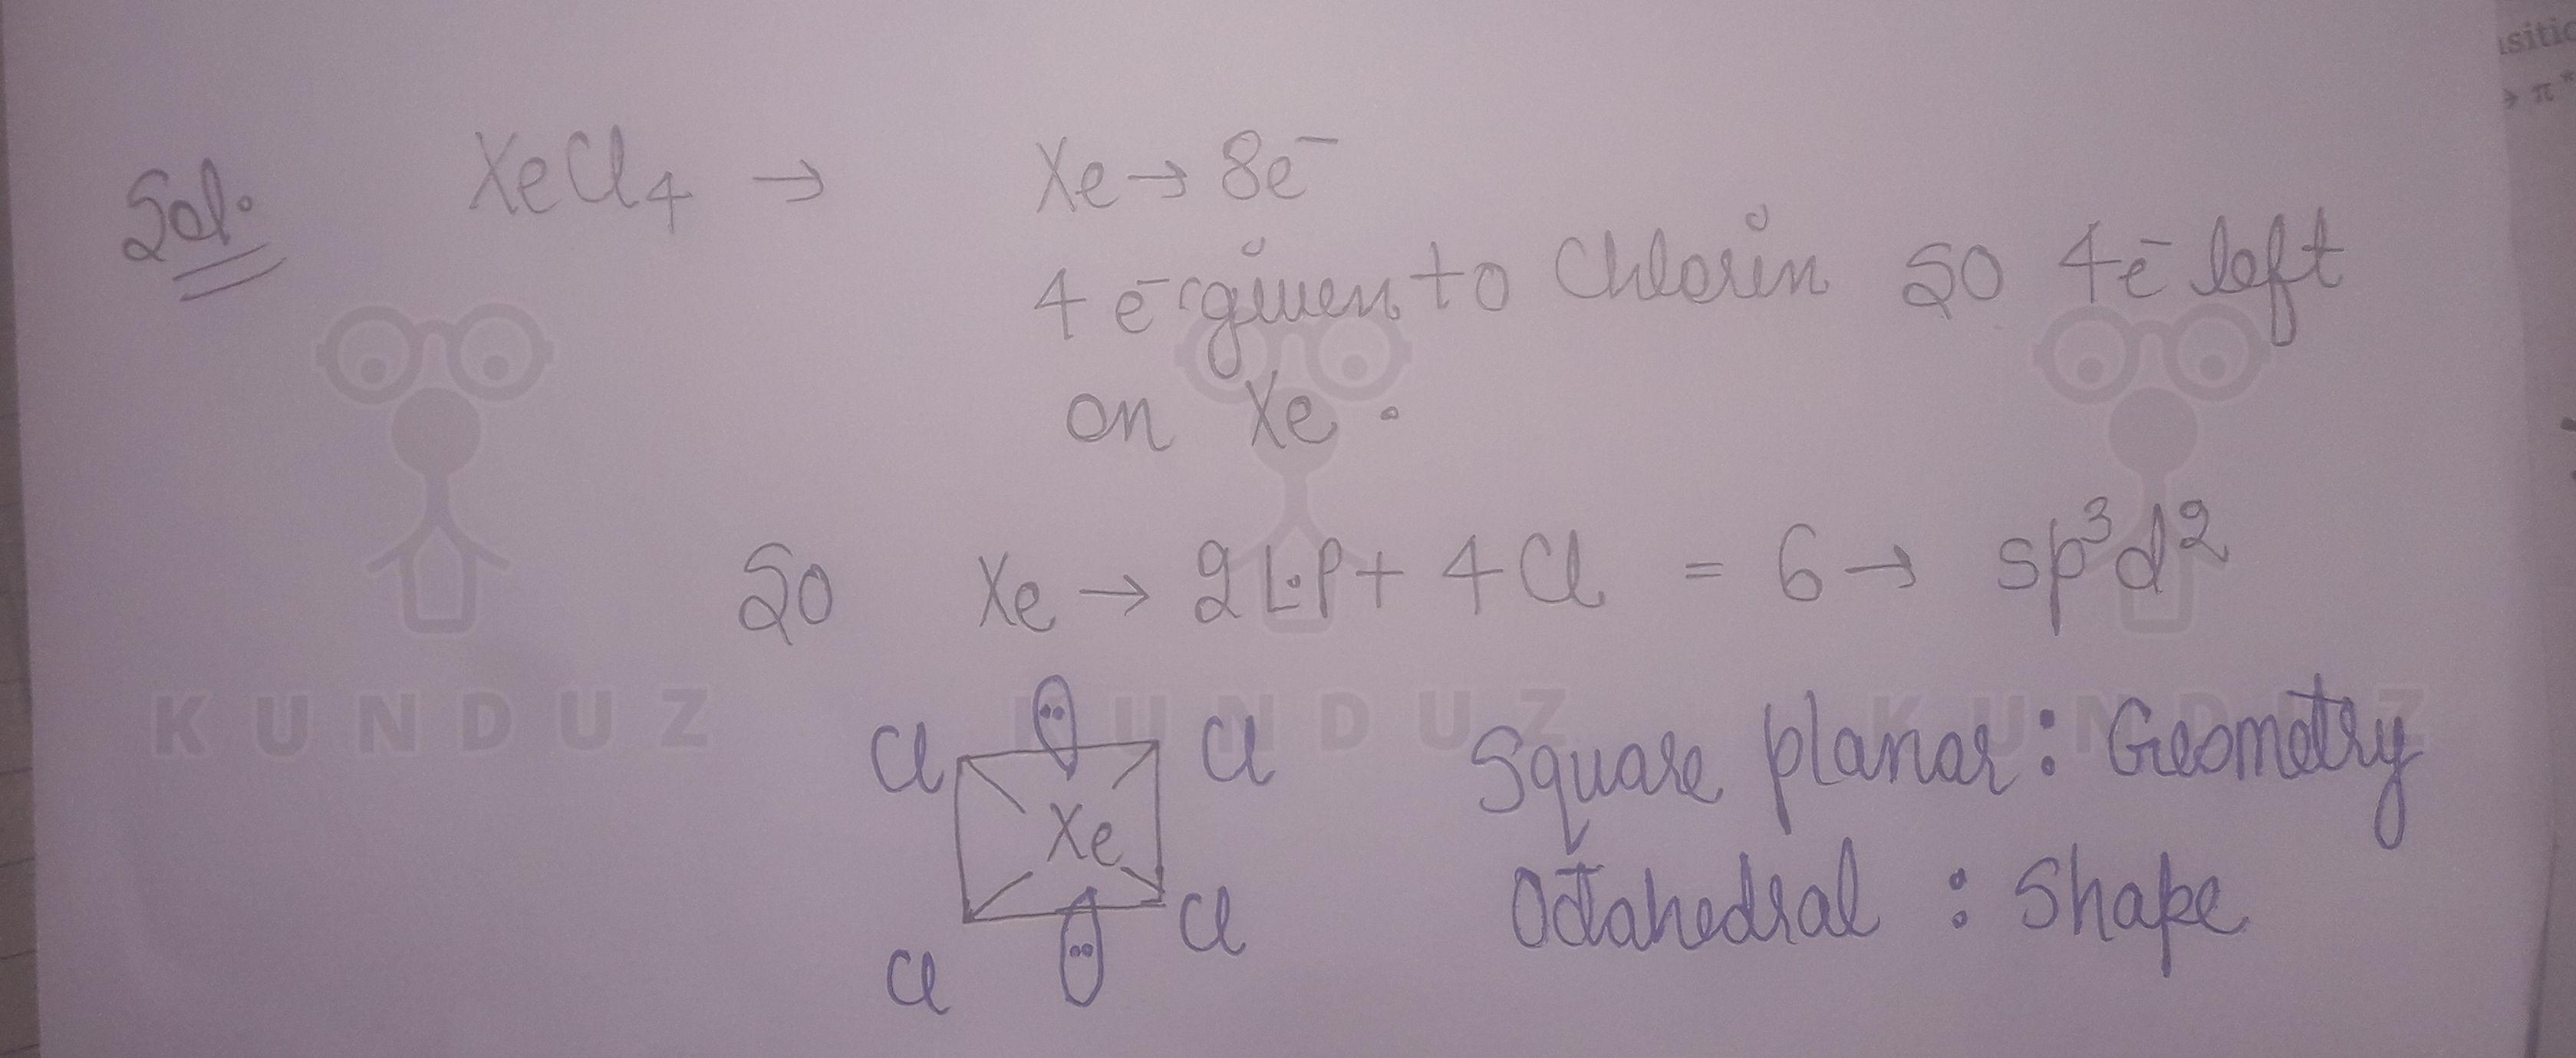 Sol. XeCl₄ → Xe → 8e⁻
4 e⁻ given to Chlorin so 4e⁻ left
on Xe.
So Xe → 2 L.P + 4 Cl = 6 → sp³d²
Cl Cl
Xe
Cl Cl
Square planar : Geometry
Octahedral : Shape
KUNDUZ KUNDUZ KUNDUZ
sitio
→ π*